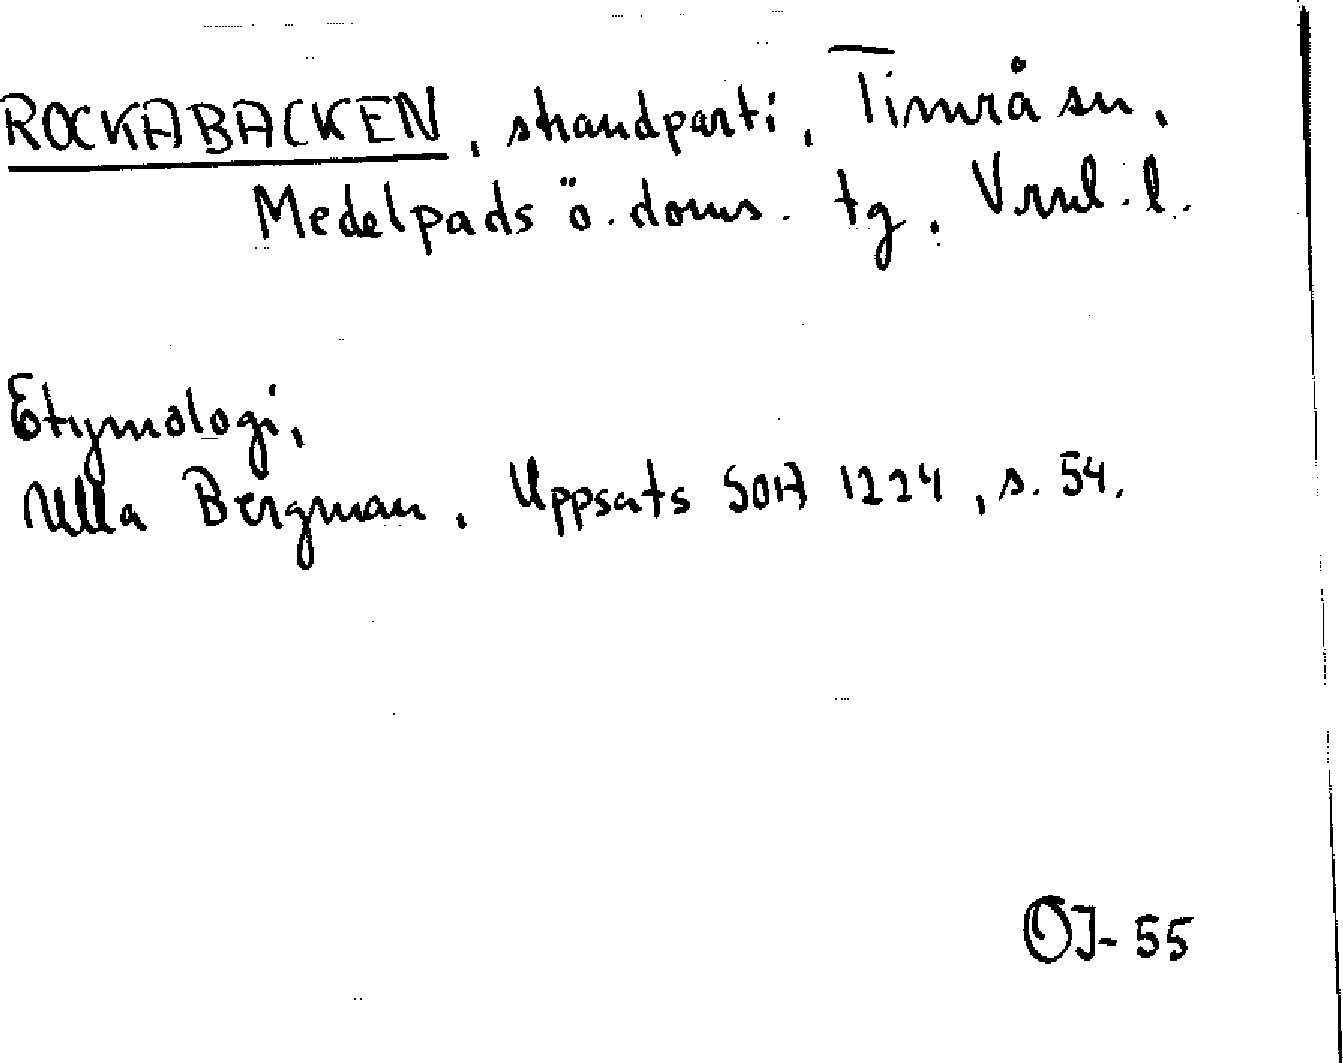 ROCKABACKEN, strandparti, Timrå sn,
Medelpads ö. doms. tg, Vrnl. l.
Etymologi,
Ulla Bergman, Uppsats SOA 1224, s. 54.
OJ-55